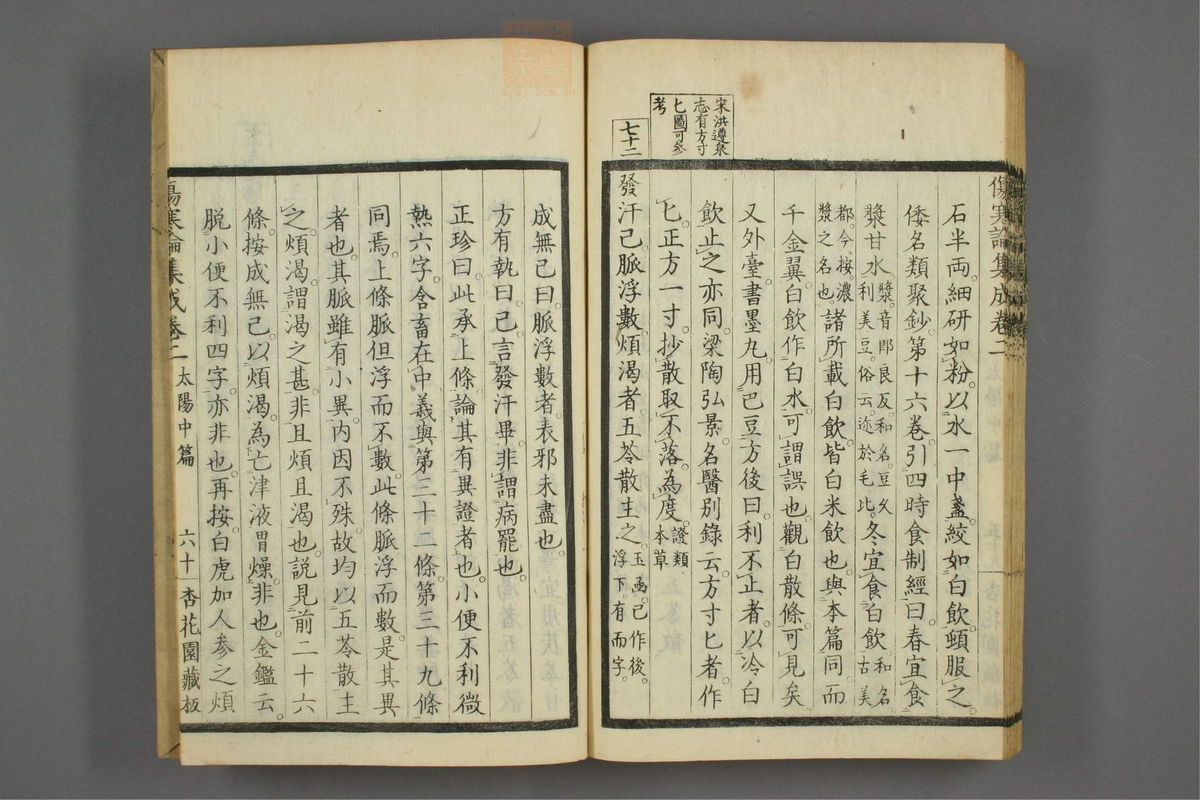 傷寒論集成卷二
石半両細研如粉以水一中盞絞如白飲頓服之
倭名類聚鈔第十六卷引四時食制經曰春宜食
漿甘水漿音即良反和名豆久利美豆俗云迩於毛比冬宜食白飲和名古美
都今按濃漿之名也諸所載白飲皆白米飲也與本篇同而
千金翼白飲作白水可謂誤也觀白散條可見矣
又外臺書墨丸用巴豆方後曰利不止者以冷白
飲止之亦同梁陶弘景名醫別錄云方寸匕者作
匕正方一寸抄散取不落為度證類本草
宋洪遵泉
志有方寸
匕圖可參
考
七十二
發汗已脈浮數煩渴者五苓散主之玉函已作後浮下有而字
成無己曰脈浮數者表邪未盡也
方有執曰已言發汗畢非謂病罷也
正珍曰此承上條論其有異證者也小便不利微
熱六字含畜在中義與第三十二條第三十九條
同焉上條脈但浮而不數此條脈浮而數是其異
者也其脈雖有小異内因不殊故均以五苓散主
之煩渴謂渴之甚非且煩且渴也說見前二十六
條按成無己以煩渴為亡津液胃燥非也金鑑云
脱小便不利四字亦非也再按白虎加人参之煩
傷寒論集成卷二 太陽中篇 六十 杏花園藏板